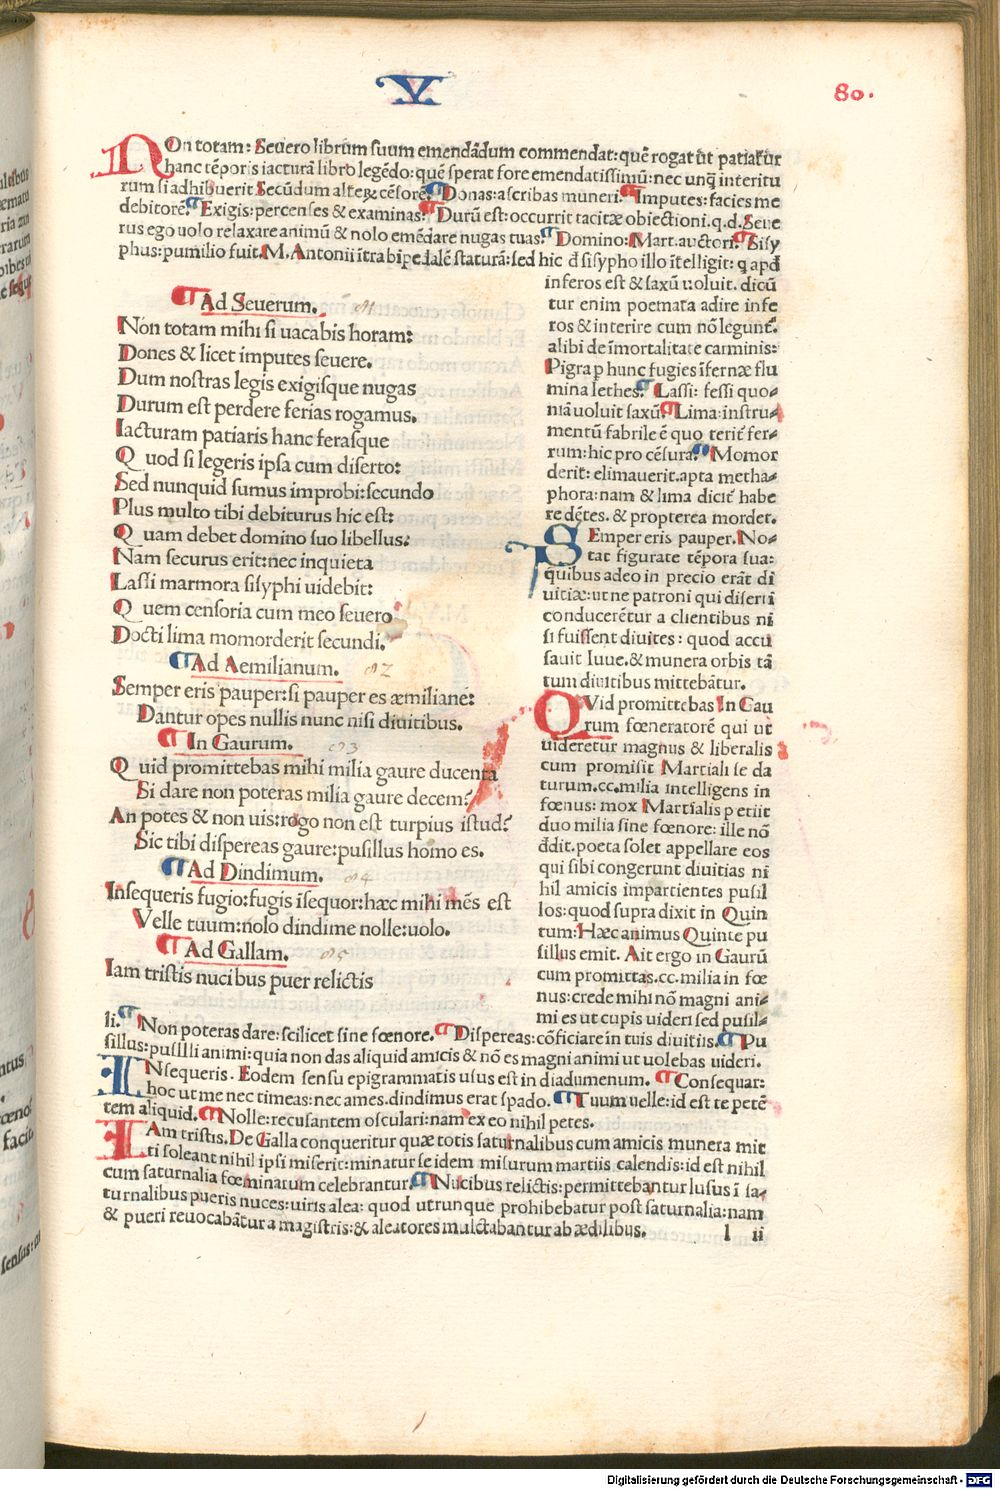 V
80.
NOn totam: Seuero librum suum emendādum commendat: quē rogat ut patiatur
hanc tēporis iacturā libro legēdo: quē sperat fore emendatissimū: nec unq̄ interitu
rum si adhibuerit Secūdum alteꝝ cēsorē. ¶ Donas: ascribas muneri. ¶ Imputes: facies me
debitorē. ¶ Exigis: percenses & examinas. ¶ Durū est: occurrit tacitæ obiectioni. q.d. Seue
rus ego uolo relaxare animū & nolo emēdare nugas tuas. ¶ Domino: Mart. auctori. ¶ Sisy
phus: pumilio fuit. M. Antonii ītra bipedalē staturā: sed hic đ sisypho illo ītelligit: q apđ
inferos est & saxū uoluit. dicū
tur enim poemata adire infe
ros & interire cum nō legunt̄.
alibi de īmortalitate carminis:
Pigra p hunc fugies īfernæ flu
mina lethes. ¶ Lassi: fessi quo-
niā uoluit saxū. ¶ Lima: instru-
mentū fabrile ē quo terit̄ fer-
rum: hic pro cēsura. ¶ Momor
derit: elimauerit. apta metha-
phora: nam & lima dicit̄ habe
re dētes. & propterea mordet.
¶ Ad Seuerum. 81
Non totam mihi si uacabis horam:
Dones & licet imputes seuere.
Dum nostras legis exigisque nugas
Durum est perdere ferias rogamus.
Iacturam patiaris hanc ferasque
Quod si legeris ipsa cum diserto:
Sed nunquid sumus improbi: secundo
Plus multo tibi debiturus hic est:
Quam debet domino suo libellus:
Nam securus erit: nec inquieta
Lassi marmora sisyphi uidebit:
Quem censoria cum meo seuero
Docti lima momorderit secundi.
¶ Ad Aemilianum. 82
Semper eris pauper: si pauper es æmiliane:
Dantur opes nullis nunc nisi diuitibus.
¶ In Gaurum. 83
Quid promittebas mihi milia gaure ducenta
Si dare non poteras milia gaure decem?
An potes & non uis: rogo non est turpius istud?
Sic tibi dispereas gaure: pusillus homo es.
¶ Ad Dindimum. 84
Insequeris fugio: fugis īsequor: hæc mihi mēs est
Velle tuum: nolo dindime nolle: uolo.
¶ Ad Gallam. 85
Iam tristis nucibus puer relictis
SEmper eris pauper. No-
tat figurate tēpora sua:
quibus adeo in precio erāt di
uitiæ: ut ne patroni qui diserti
conducerētur a clientibus ni
si fuissent diuites: quod accu
sauit Iuue. & munera orbis tā
tum diuitibus mittebātur.
QVid promittebas In Gau
rum fœneratorē qui ut
uideretur magnus & liberalis
cum promisit Martiali se da
turum .cc. milia intelligens in
fœnus: mox Martialis petiit
duo milia sine fœnore: ille nō
đdit. poeta solet appellare eos
qui sibi congerunt diuitias ni
hil amicis impartientes pusil
los: quod supra dixit in Quin
tum: Hæc animus Quinte pu
sillus emit. Ait ergo in Gaurū
cum promittas .cc. milia in fœ
nus: crede mihi nō magni ani-
mi es ut cupis uideri sed pusil-
li. ¶ Non poteras dare: scilicet sine fœnore. ¶ Dispereas: cōficiare in tuis diuitiis. ¶ Pu
sillus: pusilli animi: quia non das aliquid amicis & nō es magni animi ut uolebas uideri.
INsequeris. Eodem sensu epigrammatis usus est in diadumenum. ¶ Consequar:
hoc ut me nec timeas: nec ames. dindimus erat spado. ¶ Tuum uelle: id est te petē
tem aliquid. ¶ Nolle: recusantem osculari: nam ex eo nihil petes.
IAm tristis. De Galla conqueritur quæ totis saturnalibus cum amicis munera mit
ti soleant nihil ipsi miserit: minatur se idem misurum martiis calendis: id est nihil
cum saturnalia fœminarum celebrantur. ¶ Nucibus relictis: permittebantur lusus ī sa-
turnalibus pueris nuces: uiris alea: quod utrunque prohibebatur post saturnalia: nam
& pueri reuocabātur a magistris: & aleatores mulctabantur ab ædilibus.
l ii
Digitalisierung gefördert durch die Deutsche Forschungsgemeinschaft - DFG